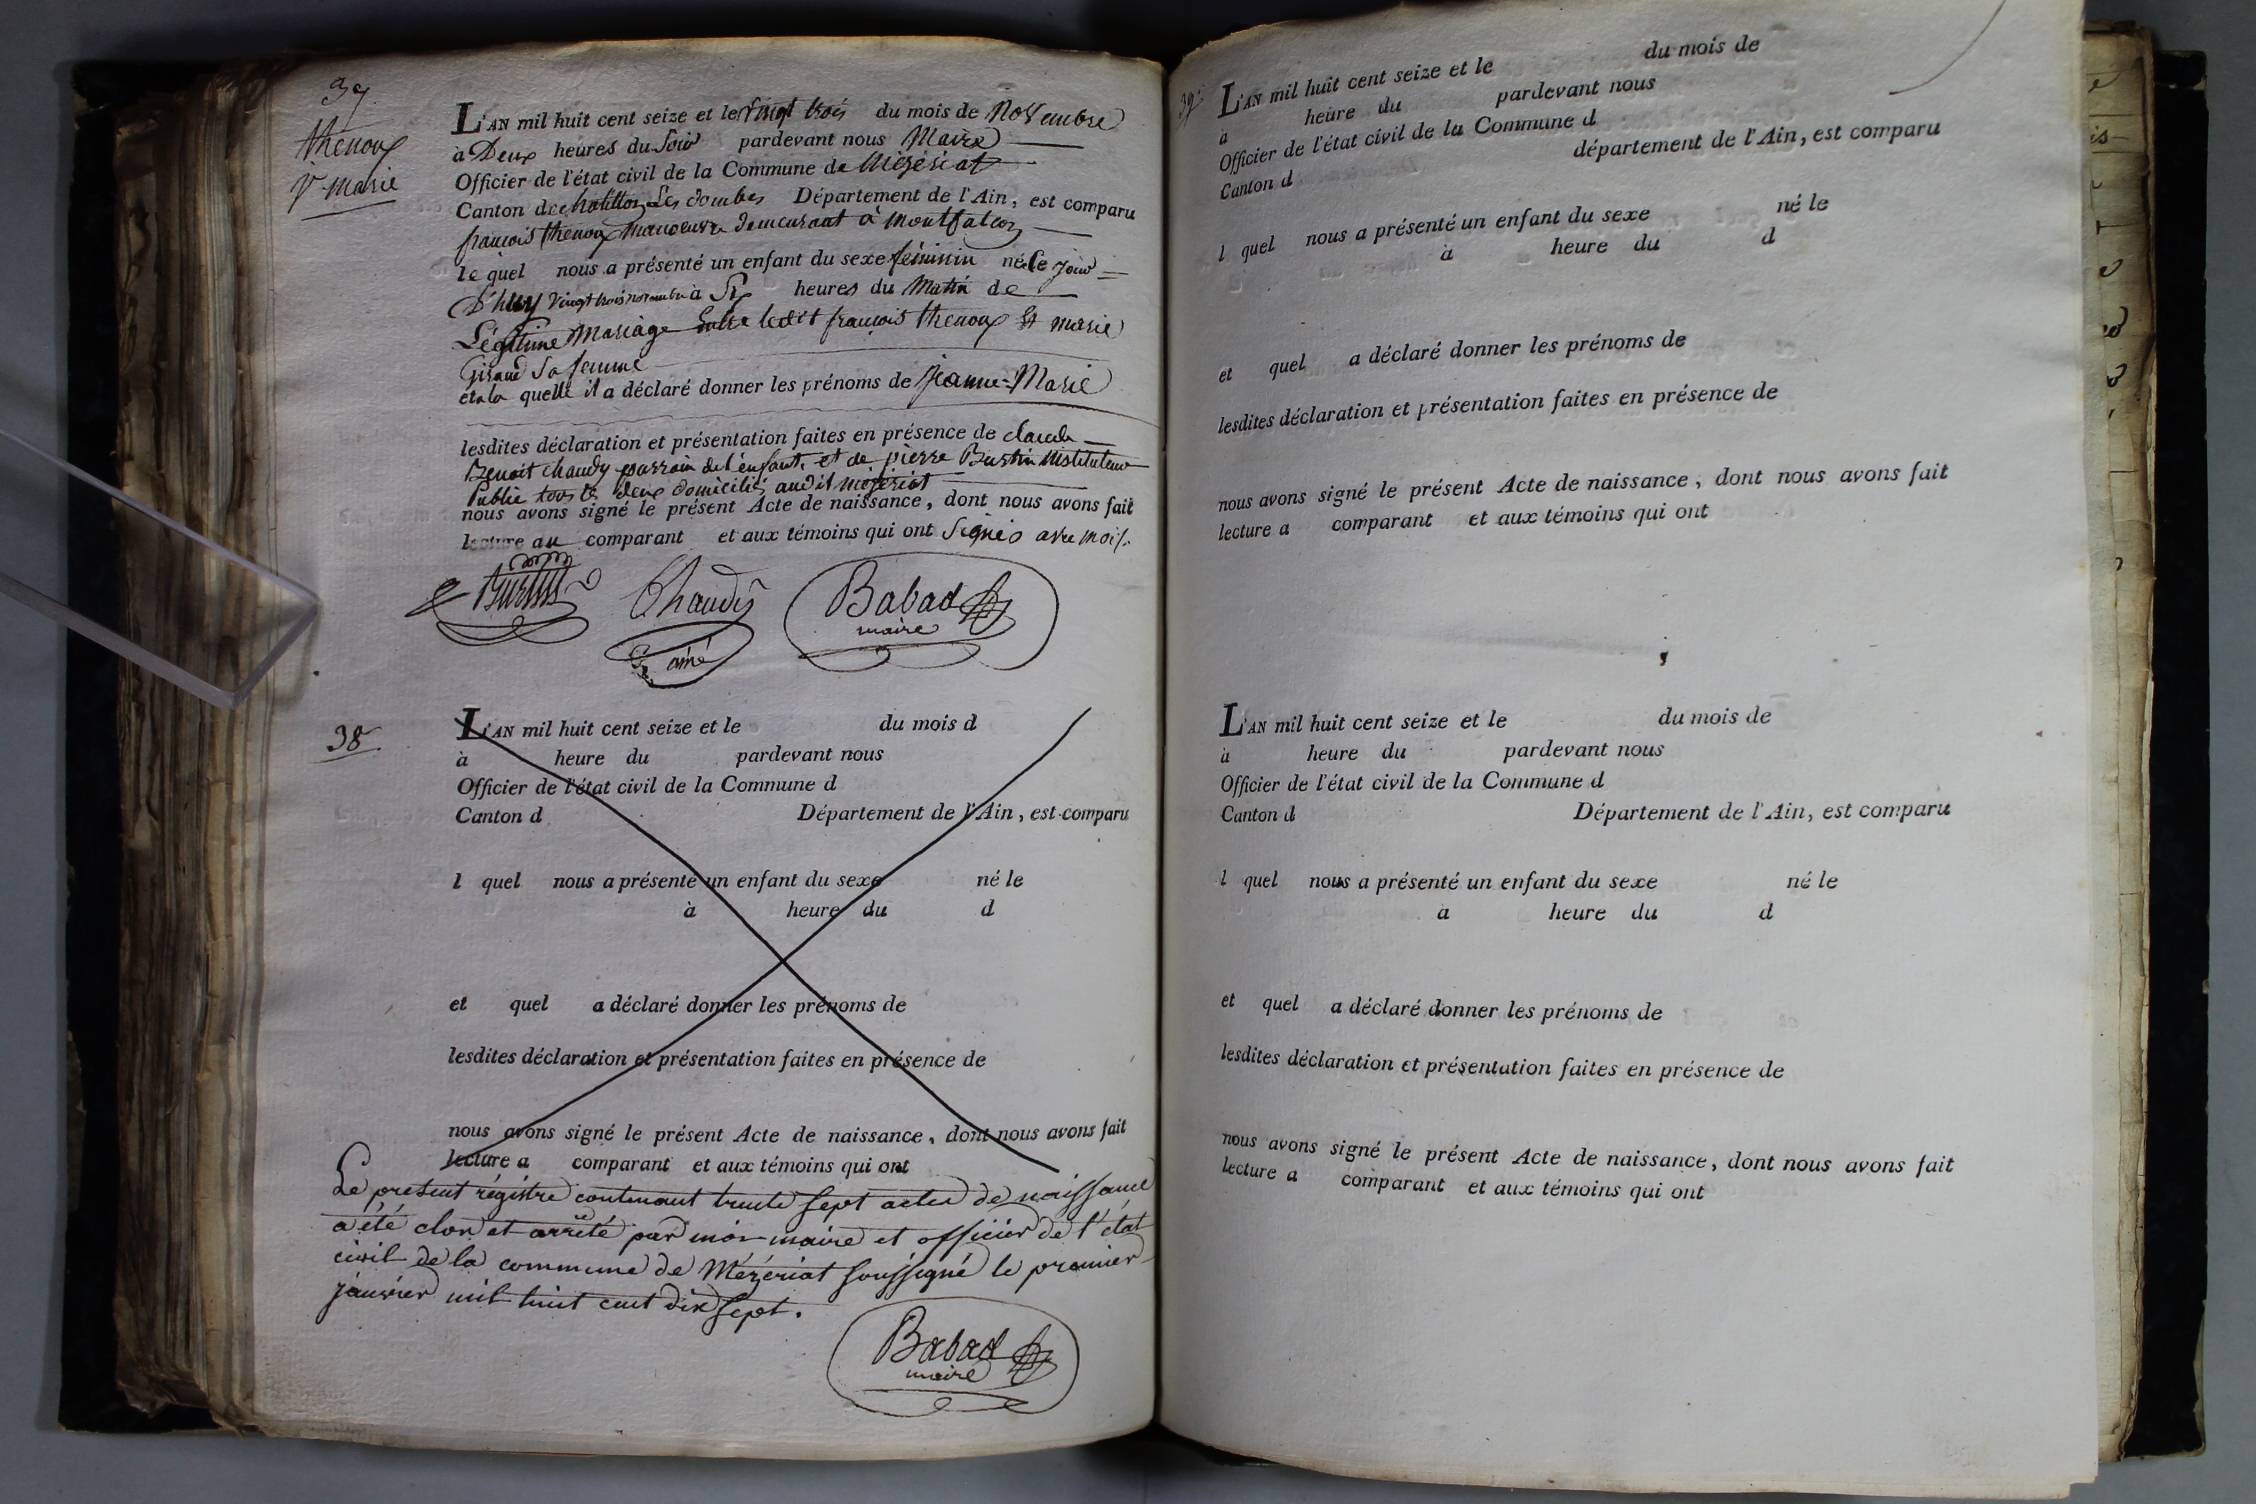 37.
thenoux
Jne marie
L'AN mil huit cent seize et le vingt trois du mois de Novembre
à Deux heures du soir pardevant nous Maire
Officier de l'état civil de la Commune de Mézériat
Canton de chatillon Les dombes Département de l'Ain, est comparu
francois thenoux manoeuvre demeurant à montfalcon
le quel nous a présenté un enfant du sexe féminin né le jour
D'huy vingt trois novembre à Six heures du Matin de
Légitime Mariage Entre ledit françois thenoux Et marie
Giraud Sa femme
et a la quelle il a déclaré donner les prénoms de Jeanne-Marie
lesdites déclaration et présentation faites en présence de claude
Benoit chaudy parrain de l'enfant, et de pierre Burtin instituteur
Public tous les deux domiciliés audit mézériat
nous avons signé le présent Acte de naissance, dont nous avons fait
lecture au comparant et aux témoins qui ont Signés avec moi /.
Burtin
Chaudy
Babad
maire
ainé
38
L'AN mil huit cent seize et le du mois d
à heure du pardevant nous
Officier de l'état civil de la Commune d
Canton d Département de l'Ain, est comparu
l quel nous a présenté un enfant du sexe né le
à heure du d
et quel a déclaré donner les prénoms de
lesdites déclaration et présentation faites en présence de
nous avons signé le présent Acte de naissance, dont nous avons fait
lecture a comparant et aux témoins qui ont
Le présent régistre contenant trente sept actes de naissance
a été clos et arrêté par moi maire et officier de l'état
civil de la commune de Mézériat soussigné le premier
janvier mil huit cent dix sept.
Babad
maire
39
L'AN mil huit cent seize et le du mois de
à heure du pardevant nous
Officier de l'état civil de la Commune d
Canton d département de l'Ain, est comparu
l quel nous a présenté un enfant du sexe né le
à heure du d
et quel a déclaré donner les prénoms de
lesdites déclaration et présentation faites en présence de
nous avons signé le présent Acte de naissance, dont nous avons fait
lecture a comparant et aux témoins qui ont
L'AN mil huit cent seize et le du mois de
à heure du pardevant nous
Officier de l'état civil de la Commune d
Canton d Département de l'Ain, est comparu
l quel nous a présenté un enfant du sexe né le
à heure du d
et quel a déclaré donner les prénoms de
lesdites déclaration et présentation faites en présence de
nous avons signé le présent Acte de naissance, dont nous avons fait
lecture a comparant et aux témoins qui ont